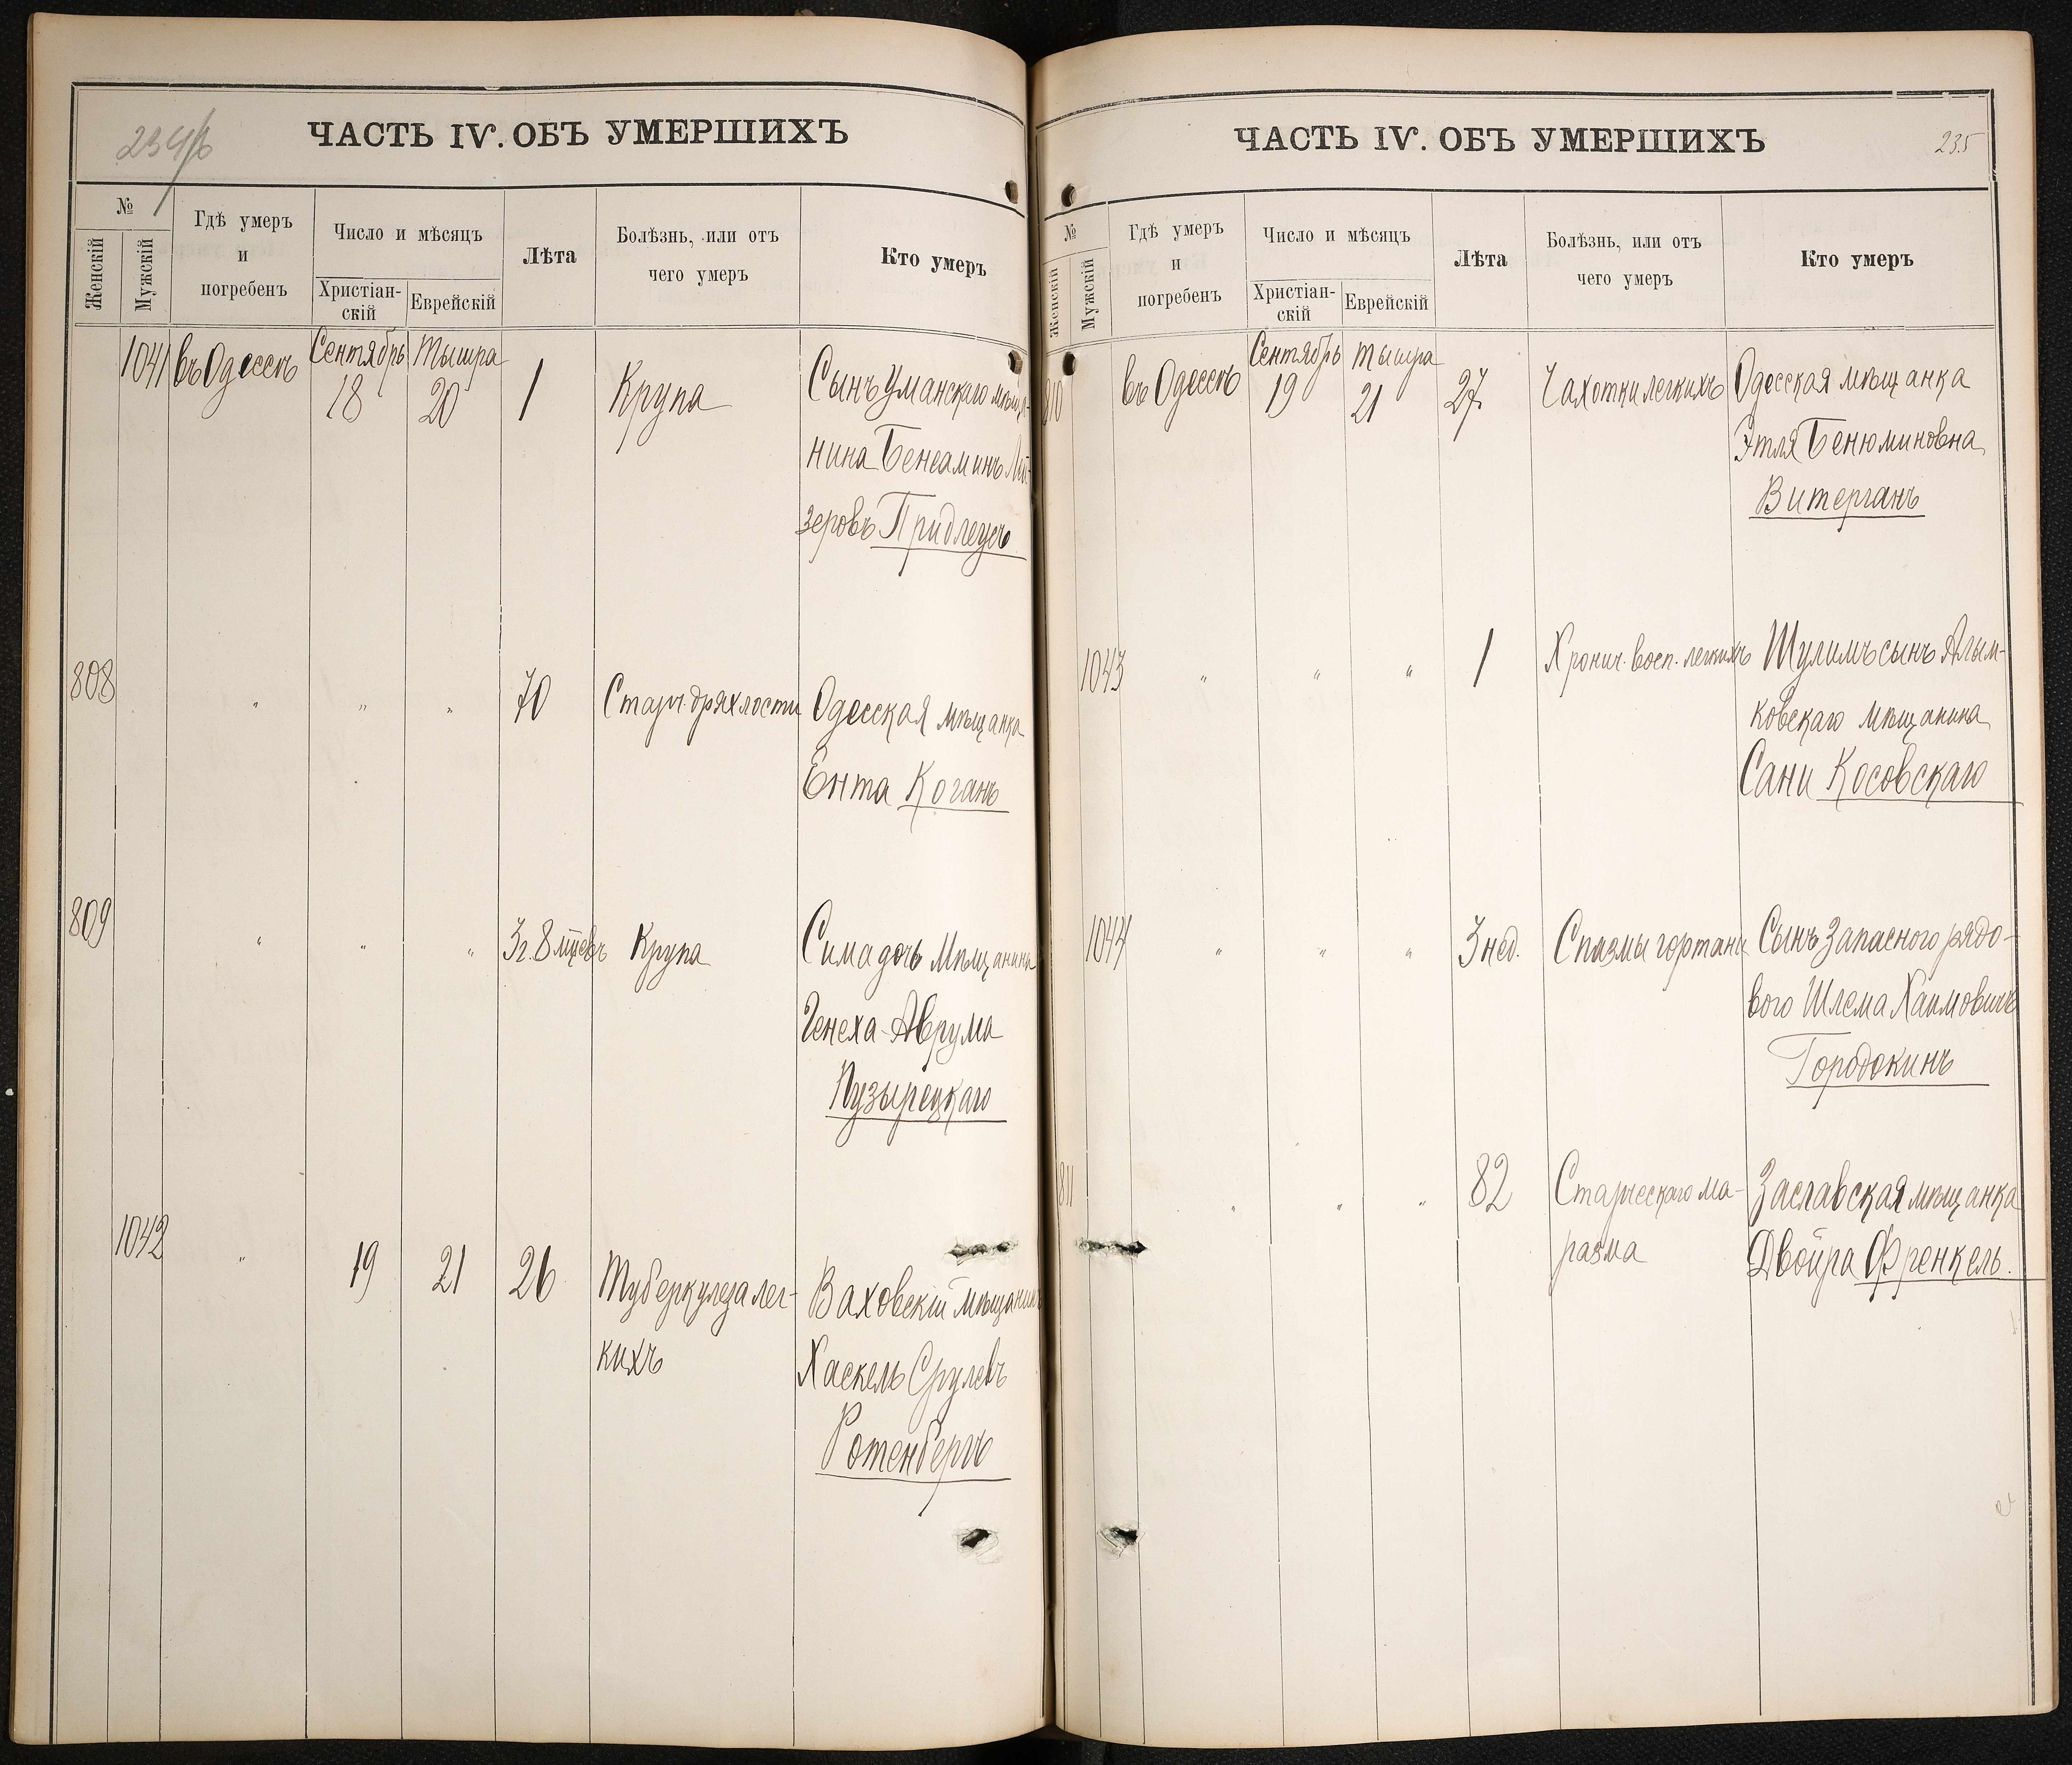 234/б
ЧАСТЬ IV. ОБЪ УМЕРШИХЪ
№
Женскій
Мужскій
Гдѣ умеръ
и
погребенъ
Число и мѣсяцъ
Христіан-
скій
Еврейскій
Лѣта
Болѣзнь, или отъ
чего умеръ
Кто умеръ
1041 въ Одессѣ Сентябрь 18 Тышра 20 1 Крупа Сынъ Уманскаго мѣща-
нина Бенеаминъ Лей-
зеровъ Придлеусъ
808 " " " 70 Старч. дряхлости Одесская мѣщанка
Ента Коганъ
809 " " " 3г. 8 мцевъ Крупа Сима дочь Мѣщанина
Генеха-Аврума
Пузырецкаго
1042 " 19 21 26 Туберкулеза лег- Ваховскій мѣщанинъ
кихъ Хаскель Срулевъ
Ротенбергъ
ЧАСТЬ IV. ОБЪ УМЕРШИХЪ
235
№
Женскій
Мужскій
Гдѣ умеръ
и
погребенъ
Число и мѣсяцъ
Христіан-
скій
Еврейскій
Лѣта
Болѣзнь, или отъ
чего умеръ
Кто умеръ
810 въ Одессѣ Сентябрь 19 Тышра 21 27 Чахотки легкихъ Одесская мѣщанка
Этля Бенюминовна
Витерганъ
1043 " " " 1 Хронич. восп. легкихъ Шулимъ сынъ Алым-
ковскаго мѣщанина
Сани Косовскаго
1044 " " " 3 нед. Спазмы гортани Сынъ Запасного рядо-
вого Шлема Хаимовичъ
Городокинъ
811 " " " 82 Старческаго ма- Заславская мѣщанка
разма Двойра Френкель.